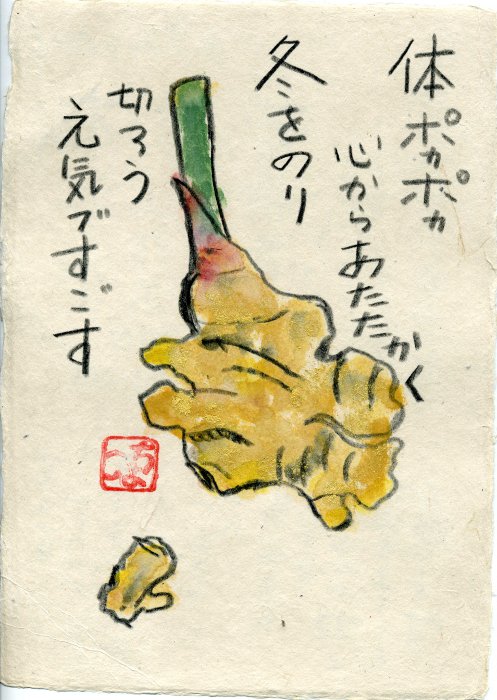 体ポカポカ
心からあたたかく
冬をのり
切ろう
元気ですごす